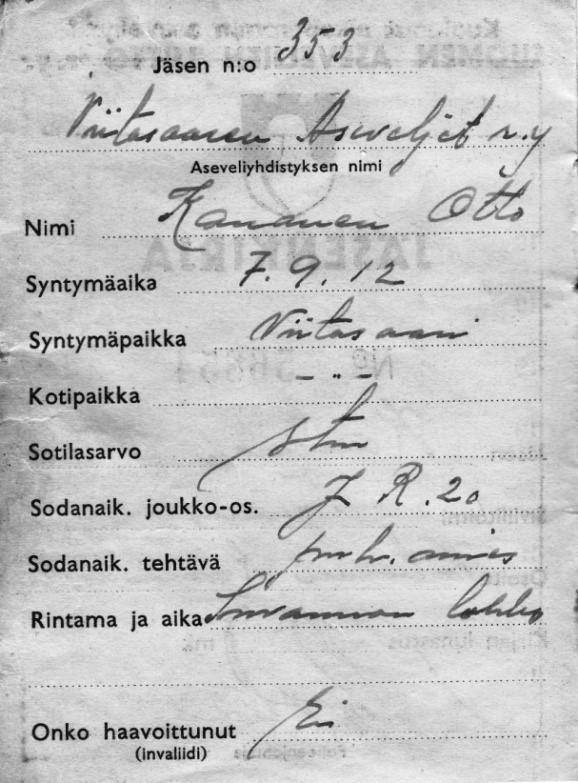 Jäsen n:o 353
Viitasaaren Aseveljet r.y
Aseveliyhdistyksen nimi
Nimi Kananen Otto
Syntymäaika 7.9.12
Syntymäpaikka Viitasaari
Kotipaikka – „ –
Sotilasarvo stm
Sodanaik. joukko-os. J R. 20
Sodanaik. tehtävä puh. mies
Rintama ja aika lohko
Onko haavoittunut Ei
(invaliidi)